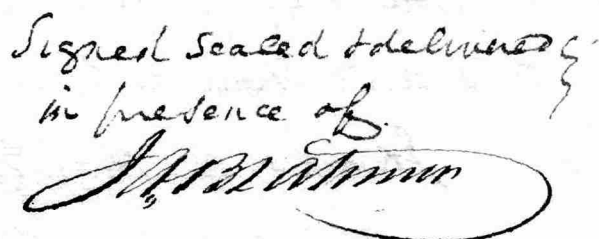 Signed sealed & delivered
in presence of